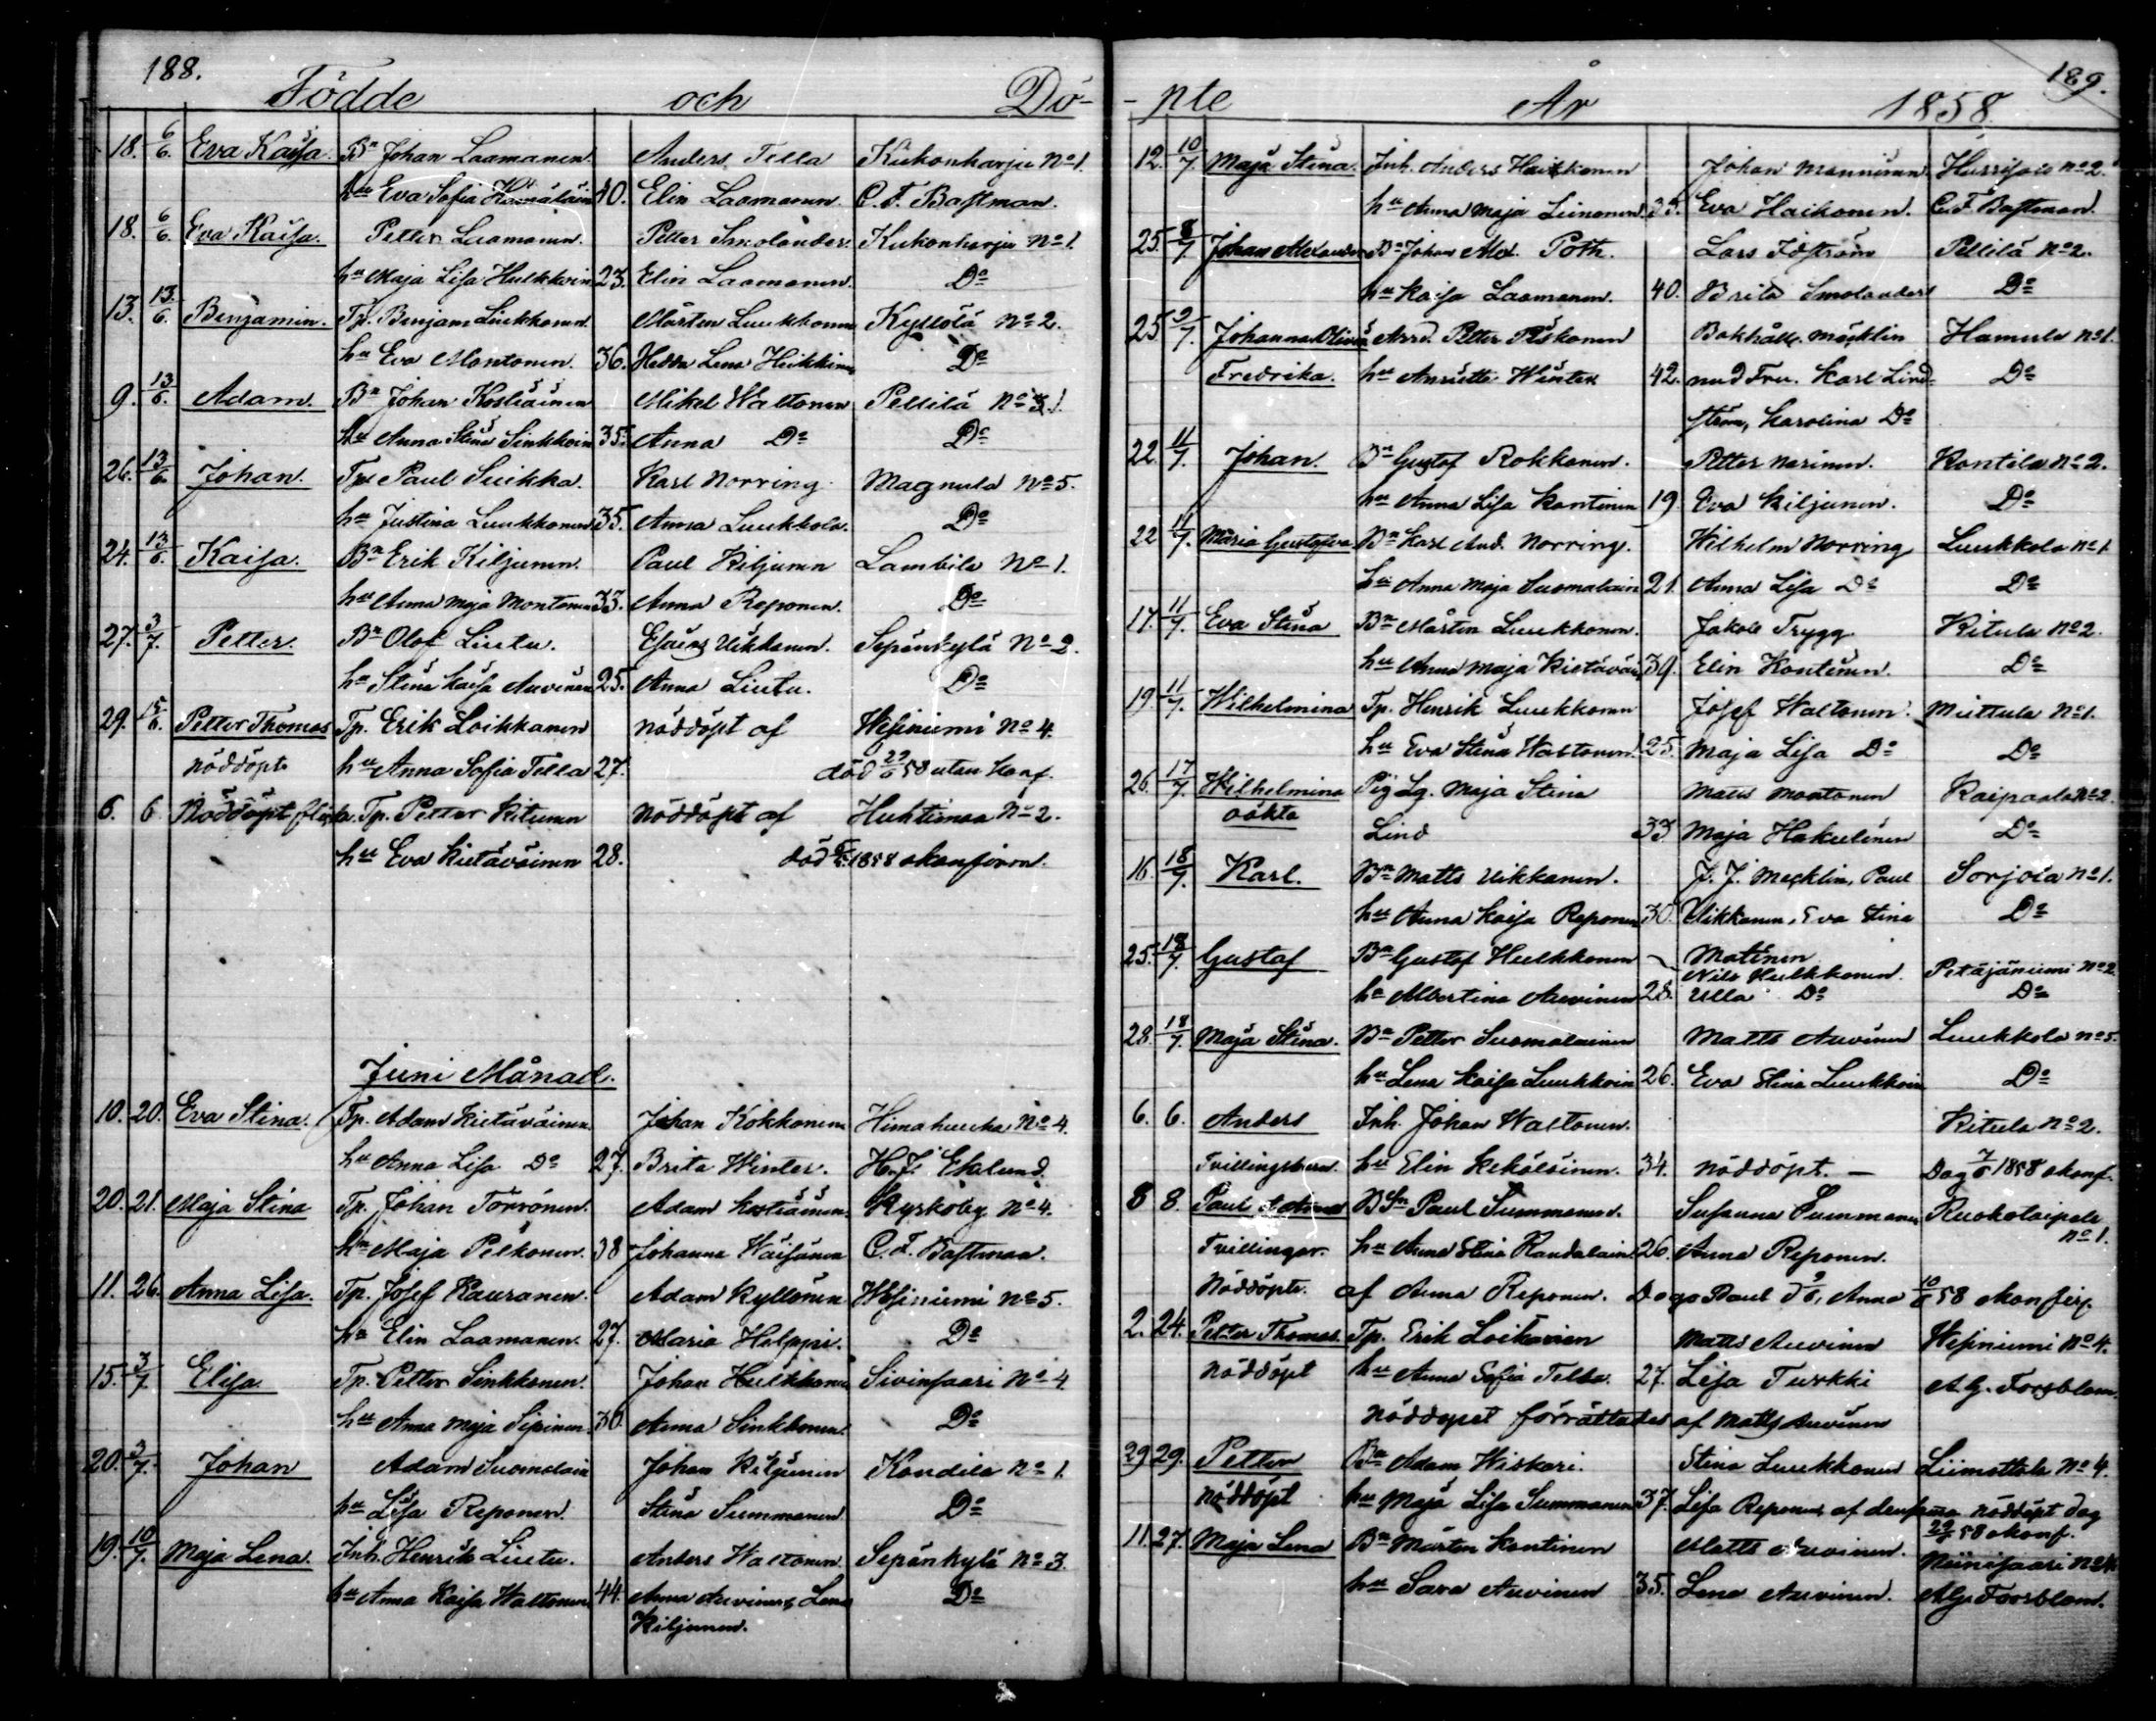 188.
Födde och Dö-
18. 6/6. Eva Kaisa. Bn Johan Laamanen. Anders Tella Kukonharju No 1.
hu Eva Sofia Hämäläin 40. Elin Laamanen. C. F. Bastman.
18. 6/6. Eva Kaisa. Petter Laamanen. Petter Smolander. Kukonharju No 1.
hu Maja Lisa Hulkkoin 23. Elin Laamanen. Do
13. 13/6. Benjamin. Tp. Benjam Luukkonen. Mårten Luukkonen Kyllölä No 2.
hu Eva Montonen. 36. Hedda Lena Heikkinen Do
9. 13/6. Adam. Bn Johan Kostiainen Mikel Waltonen Pellilä No 1.
hu Anna Stina Sinkkoin 35. Anna Do Do
26. 13/6. Johan. Tp. Paul Suikka. Karl Norring. Magnula No 5.
hu Justina Luukkonen 35. Anna Luukkola. Do
24. 13/6. Kaisa. Bn Erik Kiljunen. Paul Kiljunen Lambila No 1.
hu Anna Maja Montonen 33. Anna Reponen. Do
27. 3/7. Petter. Bn Olof Liutu. Esaias Uikkanen. Sepänkylä No 2.
hu Stina Kaisa Auvinen 25. Anna Liutu. Do
29. 15/6. Petter Thomas Tp. Erik Loikkanen nöddöpt af Wesiniemi No 4.
nöddöpt. hu Anna Sofia Tella 27. död 29/6 58 utan konf.
6. 6 Nöddöpt flicka. Tp. Petter Kitunen nöddöpt af Huhtimaa No 2.
hu Eva Kietäväinen 28. död 1858 okonfirm.
Juni Månad.
10. 20. Eva Stina. Tp. Adam Kietäväinen. Johan Kokkonen Himahuuha No 4.
hu Anna Lisa Do 27. Brita Winter. H. J. Eklund.
20. 21. Maja Stina Tp. Johan Törrönen. Adam Kostiainen. Kyrkoby No 4.
hu Maja Pelkonen. 38 Johanna Waisänen C. F. Bastman.
11. 26. Anna Lisa. Tp. Josef Kauranen. Adam Kyllönen Wesiniemi No 5.
hu Elin Laamanen. 27. Maria Helppi. Do
15. 3/7 Elisa. Tp. Petter Sinkkonen. Johan Hulkkonen Sivinsaari No 4
hu Anna Maja Sipinen. 36 Anna Sinkkonen. Do
20. 3/7. Johan Adam Suomalain Johan Kiljunen Kondila No 1.
hu Lisa Reponen. Stina Summanen Do
19. 10/7. Maja Lena. Inh. Henrik Liutu. Anders Waltonen. Sepänkylä No 3.
hu Anna Kaisa Waltonen 44. Anna Auvinen, Lena Do
Kiljunen.
189.
-pte År 1858.
12. 10/7. Maja Stina. Inh. Anders Haikkonen Johan Manninen. No 2.
hu Anna Maja Liinonen. 35. Eva Haikonen. C. F. Bastman.
25. 8/7 Johan Alexander Bn Johan Alex. Poth. Lars Idström Pellilä No 2.
hu Kaisa Laamanen. 40. Brita Smolander Do
25 9/7. Johanna Olivia Arrd. Petter Pöskonen Bokhåll. Mäcklin Hamula No 1.
Fredrika. hu Ansiette Winter 42. med Fru. Karl Lind- Do
ström, Karolina Do
22. 11/7. Johan. Bn Gustof Rokkanen. Petter Narinen. Kontila No 2.
hu Anna Lisa Kontinen 19. Eva Kiljunen. Do
22 11/7. Maria Gustafva. Bn Karl And. Norring. Wilhelm Norring Luukkola No 1
hu Anna Maja Suomalain 21. Anna Lisa Do Do
17. 11/7. Eva Stina Bn Mårten Luukkonen. Jakob Trygg Kitula No 2.
hu Anna Maja Kietäväin 39. Elin Kontinen. Do
19. 11/7. Wilhelmina Tp. Henrik Luukkonen Josef Waltonen. Miettula No 1.
hu Eva Stina Waltonen. 25. Maja Lisa Do Do
26. 17/7. Wilhelmina Pig Lg. Maja Stina Matts Montonen Kaipaala No 2.
oäkta Lind 33 Maja Hakulinen Do
16. 18/7. Karl. Bn Matts Uikkanen. J. J. Mecklin, Paul Sorjola No 1.
hu Anna Kaisa Reponen 30. Uikkanen, Eva Stina Do
25. 18/7. Gustaf Bn Gustaf Hulkkonen Matinen
Nils Hulkkonen. Petäjäniemi No 2
hu Albertina Auvinen 28. Ulla Do Do
28. 18/7. Maja Stina. Bn Petter Suomalainen Matts Auvinen Luukkola No 5.
hu Lena Kaisa Luukkoin 26. Eva Stina Luukkoin Do
6. 6. Anders Inh. Johan Waltonen. Kitula No 2.
Tvillingsbarn. hu Elin Kekäläinen. 34. nöddöpt. — Dog 7/6 1858 okonf.
8 8. Paul Bn Paul Summanen. Susanna Summanen Ruokolaipale
No 1.
Tvillingar. hu Anna Stina Kandalain 26. Anna Reponen.
Nöddöpte. af Anna Reponen. Dogo Paul d 9/6, Anna 10/6 58 okonfir.
2. 24. Petter Thomas. Tp. Erik Loikanen Matts Auvinen Wesiniemi No 4.
nöddöpt hu Anna Sofia Tella. 27. Lisa Turkki A. G. Forsblom.
nöddopet förrättades af Matts Auvinen
29 29. Petter Bn Adam Wiskari. Stina Luukkonen Liimattala No 4.
nöddöpt hu Maja Lisa Summanen 37. Lisa Reponen, af densamma nöddöpt dog
29/6 58 okonf.
11. 27. Maja Lena Bn Mårten Kontinen Matts Auvinen. Niinisaari No 4.
hu Sara Auvinen 35. Lena Auvinen. A. G. Forsblom.